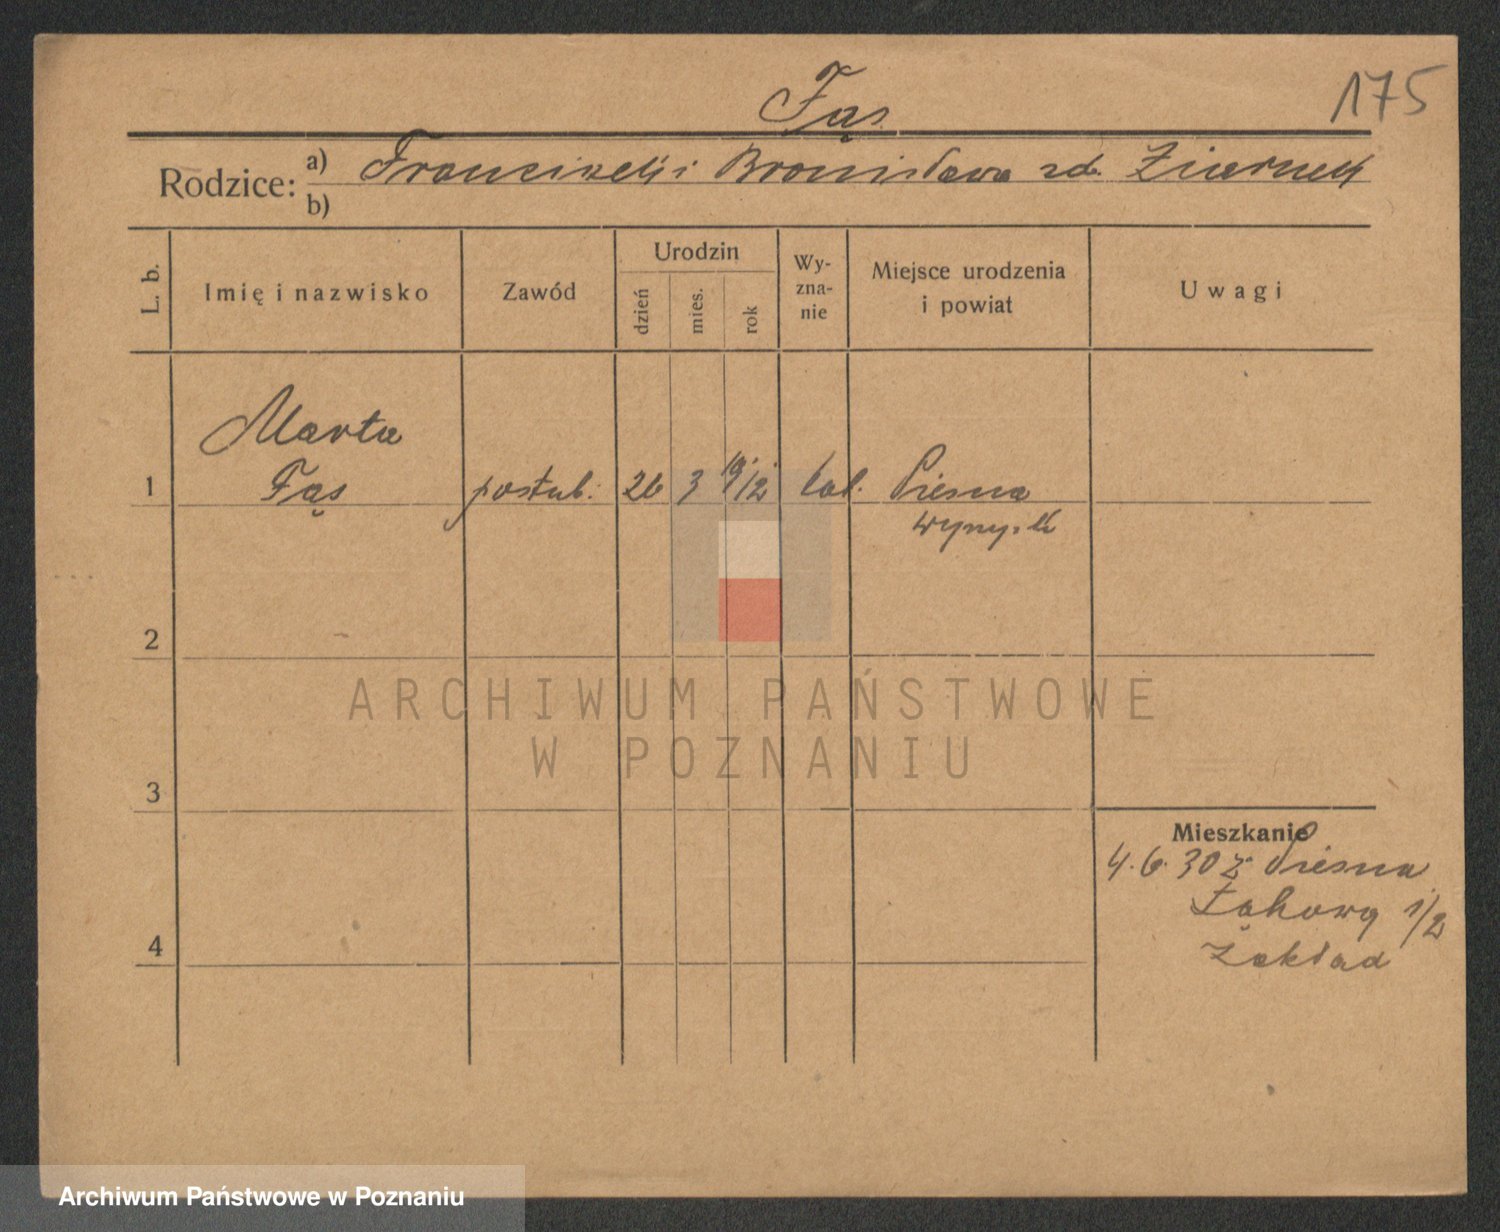 175
Fąs
Rodzice: a) Franciszek i Bronisława zd. Ziernek
b)
L. b.
Imię i nazwisko
Zawód
Urodzin
dzień
mies.
rok
Wy-
zna-
nie
Miejsce urodzenia
i powiat
Uwagi
Marta
1 Fąs postul. 26 3 19/12 kat.
2
ARCHIWUM PAŃSTWOWE
W POZNANIU
3
Mieszkanie
4. 6. 30 z
Łąkowa 1/2
Zakład
4
Archiwum Państwowe w Poznaniu